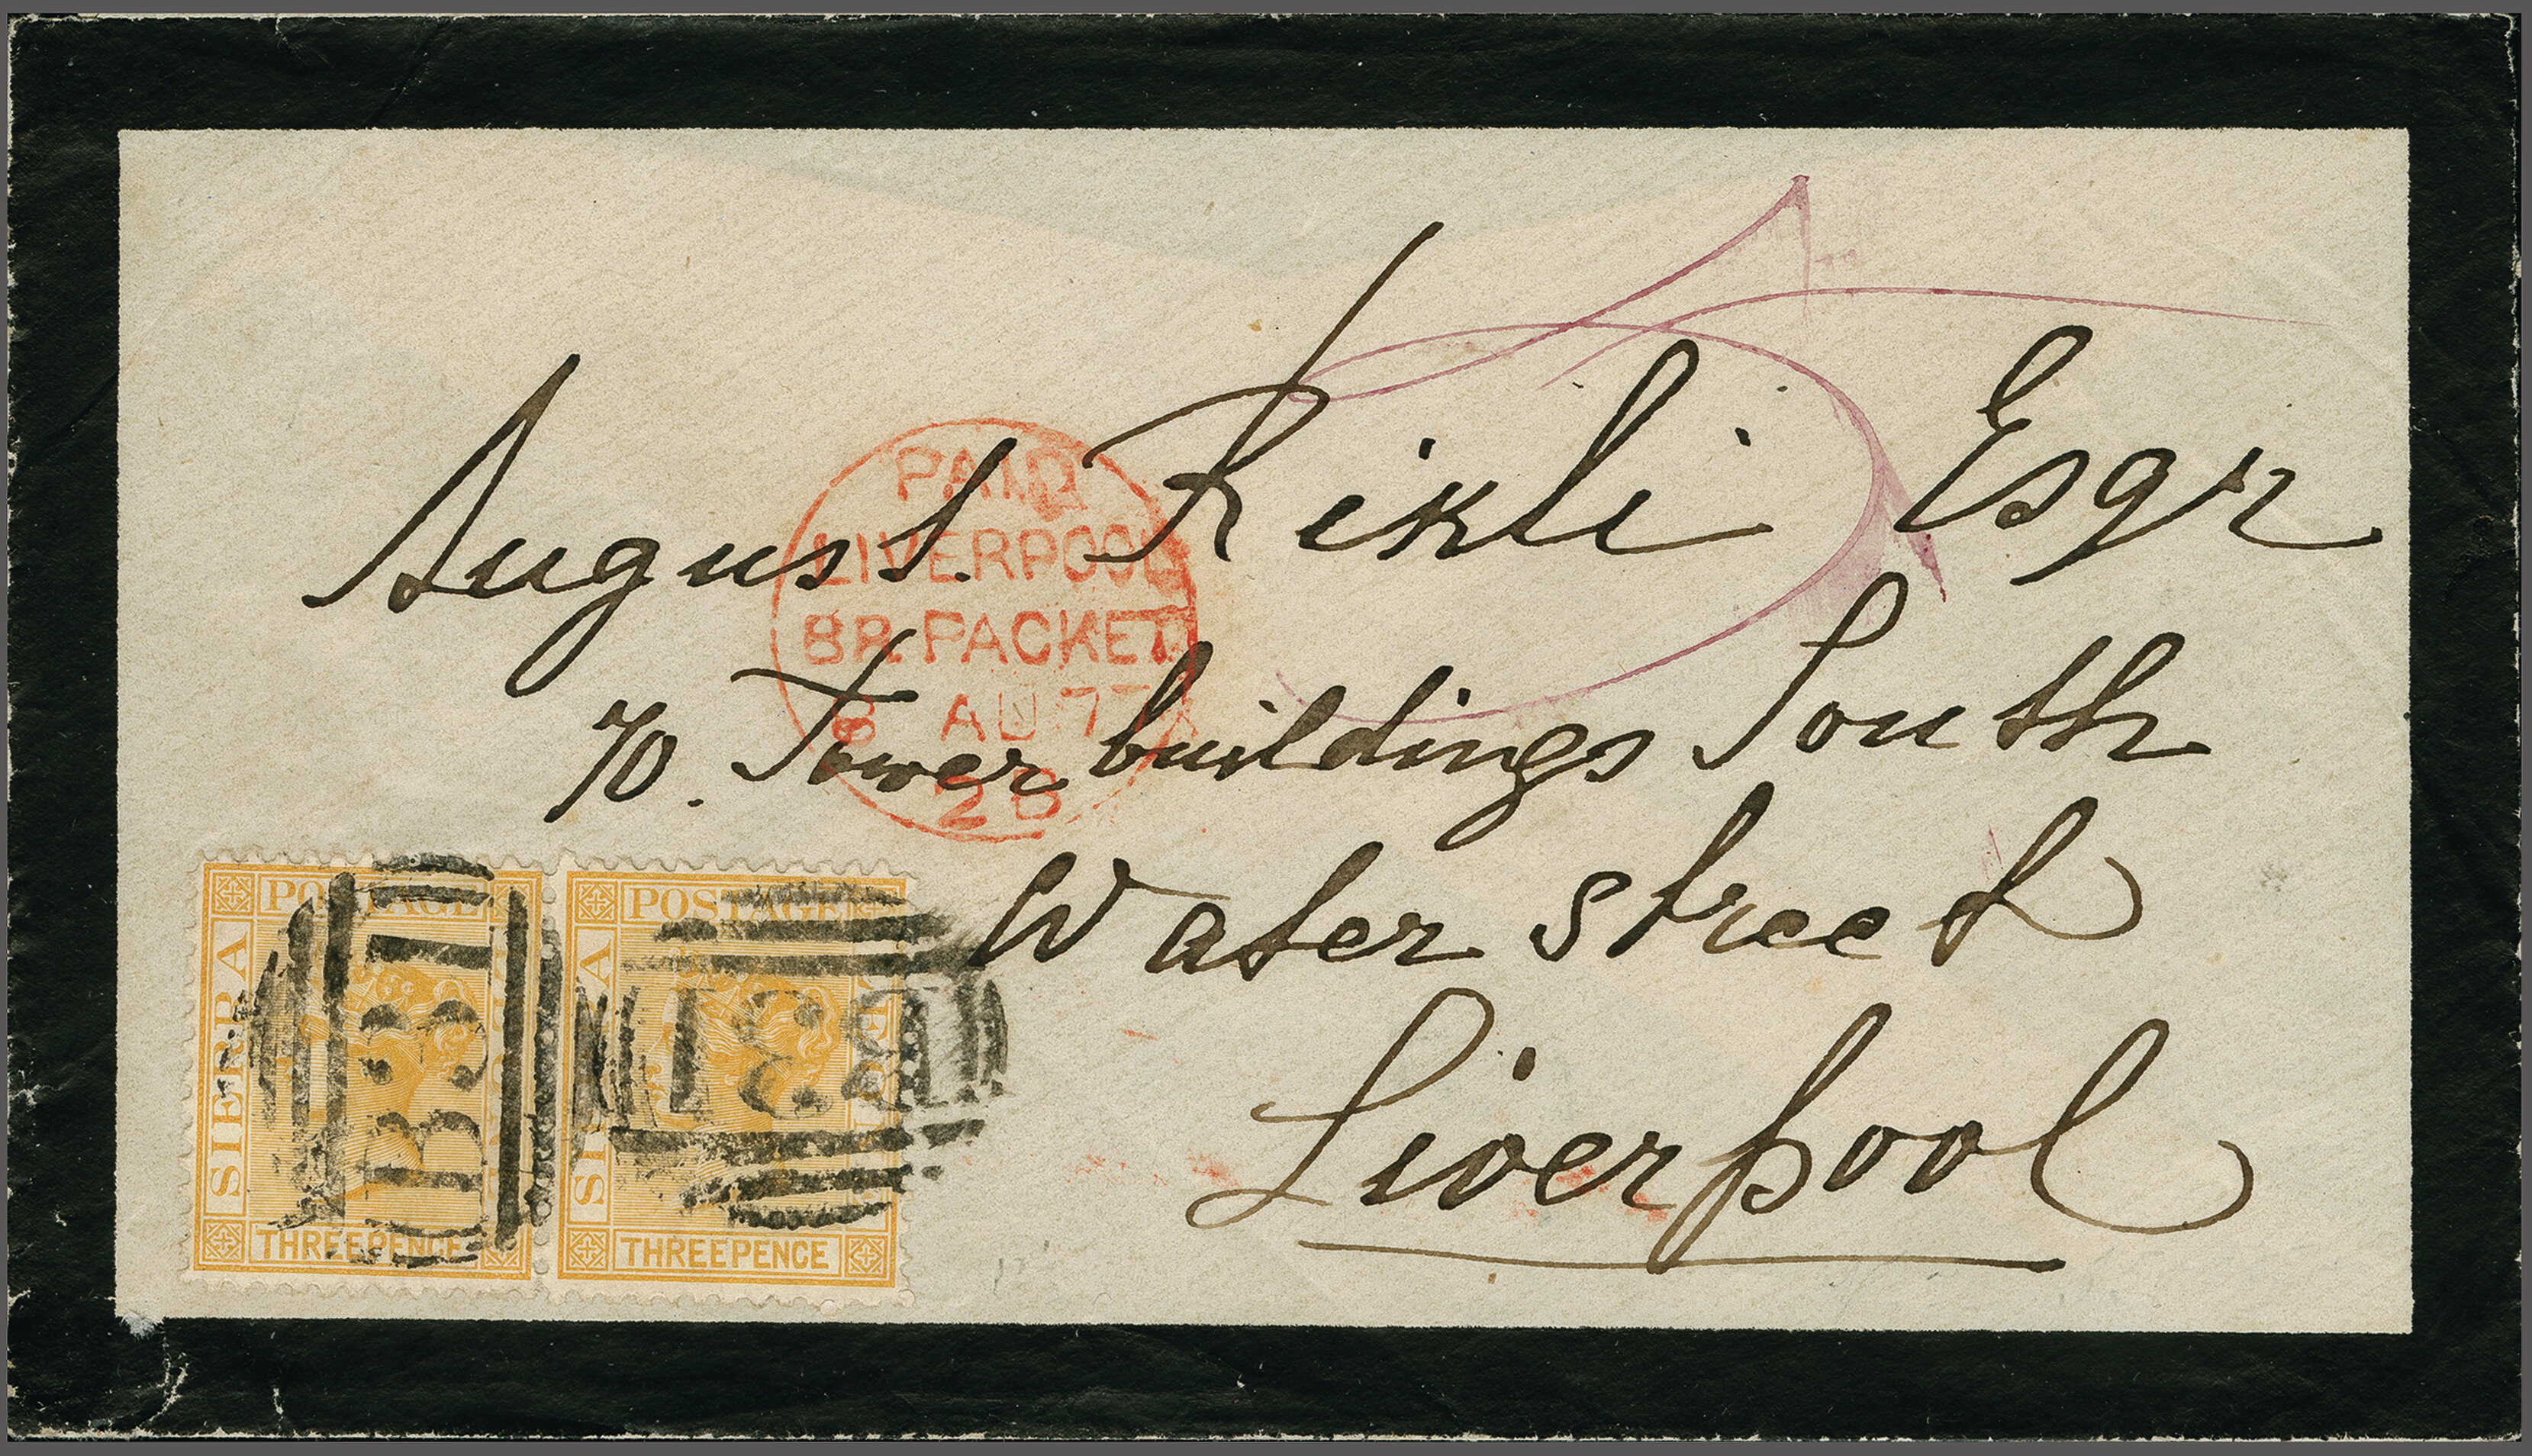 August Rikli Esqr
70. Tower buildings South
Water street
Liverpool
PAID
LIVERPOOL
BR. PACKET
8 AU 77
2B
POSTAGE
SIERRA
THREEPENCE
B31
POSTAGE
THREEPENCE
B31